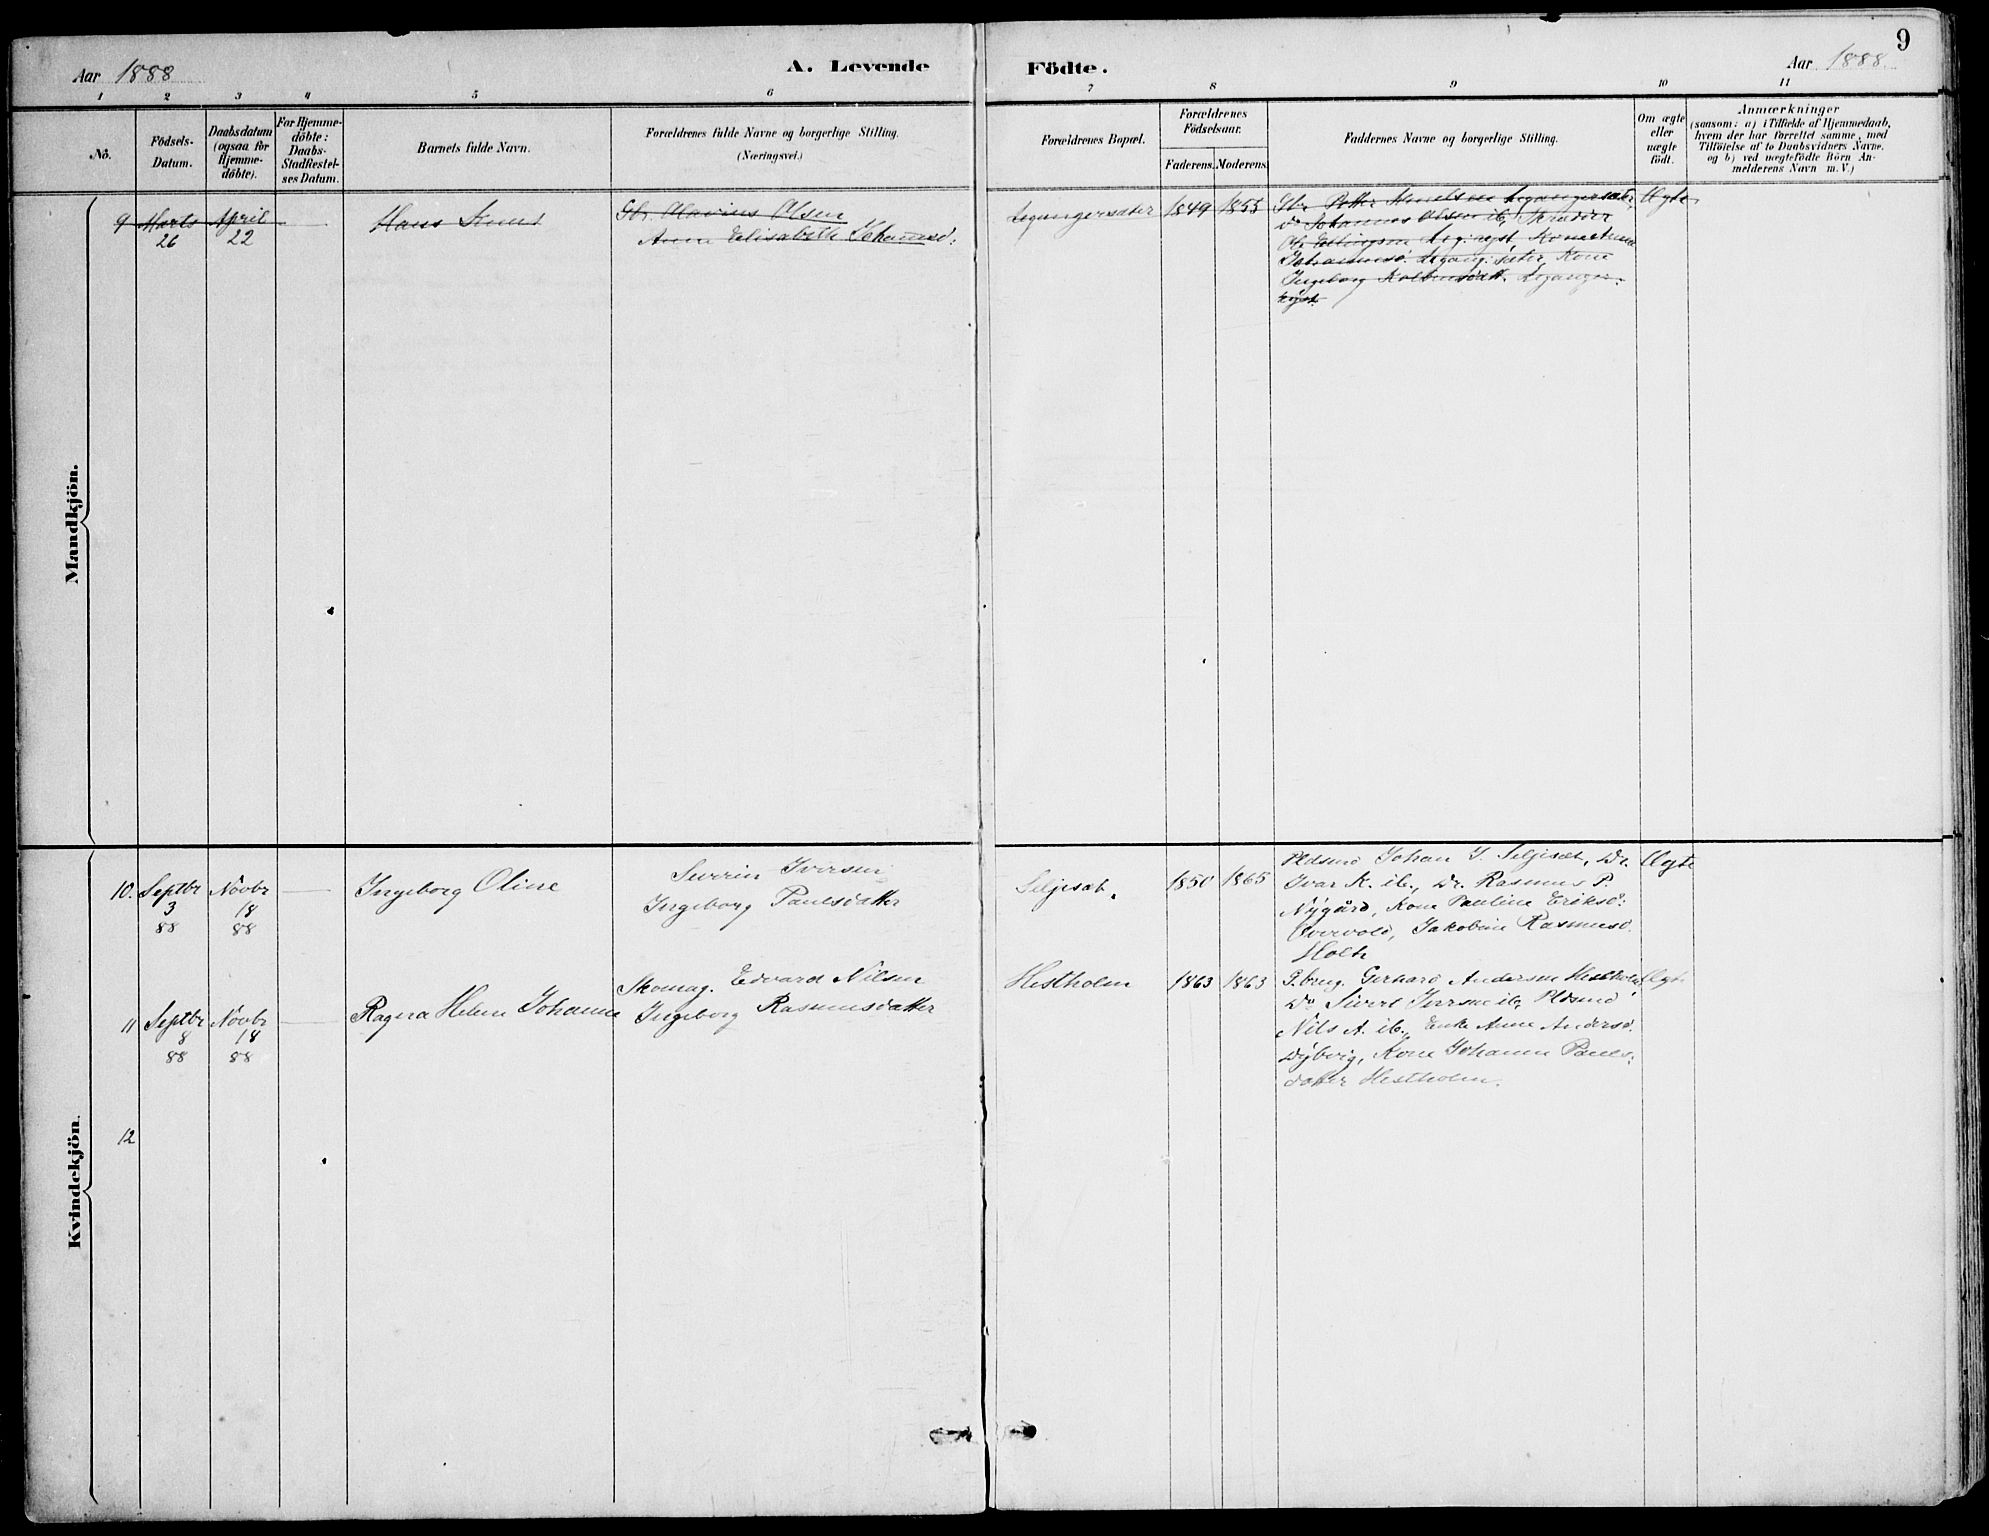 9
Aar 1888
A. Levende
Födte.
Aar 1888
1 2 3 4 5 6 7 8 9 10 11
No.
Födsels-
Datum.
Daabsdatum
(ogsaa for
Hjemme-
döbte).
For Hjemme-
döbte:
Daabs-
Stadfæstel-
ses Datum.
Barnets fulde Navn.
Forældrenes fulde Navne og borgerlige Stilling.
(Næringsvei.)
Forældrenes Bopæl.
Forældrenes
Födselsaar.
Faderens. Moderens.
Faddernes Navne og borgerlige Stilling.
Om ægte
eller
uægte
födt.
Anmærkninger
(saasom: a) i Tilfælde af Hjemmedaab,
hvem der har forrettet samme, med
Tilföielse af to Daabsvidners Navne.
og b) ved uægtefödte Börn An-
melderens Navn m. V.)
Mandkjön.
9 Marts
26
April
22
Hans Knud
Gbr. Olavius Olsen
Anna Elisabeth Johannesd:
Legangersæter
1849 1855
Gbr. Petter Legangersæter,
Do Johannes Olsen ib,
Ole Ellingsen
Kone
Ingeborg Leganger-
Ægte
Kvindekjön.
10. Septbr
3
88
Novbr
18
88
Ingeborg Oline
Severin Iversen
Ingeborg Paulsdatter
Seljesæt.
1850 1865
Johan I. Seljesæt, Dr.
Ivar K. ib., Dr. Rasmus P.
Nygård, Kone Pauline Eriksd:
Overvold, Jakobine Rasmusd.
Holth
Ægte
11 Septbr
8
88
Novbr
18
88
Ragna Helene Johanna
Skomag. Edvard Nilsen
Ingeborg Rasmusdatter
Hestholm
1863 1863
G.brug. Gerhard Andersen Hestholm
Do Sivert Iversen ib,
Nils A. ib., Enke Anne Andersd.
Dybvig, Kone Johanna Pauls-
datter Hestholm.
Ægte
12